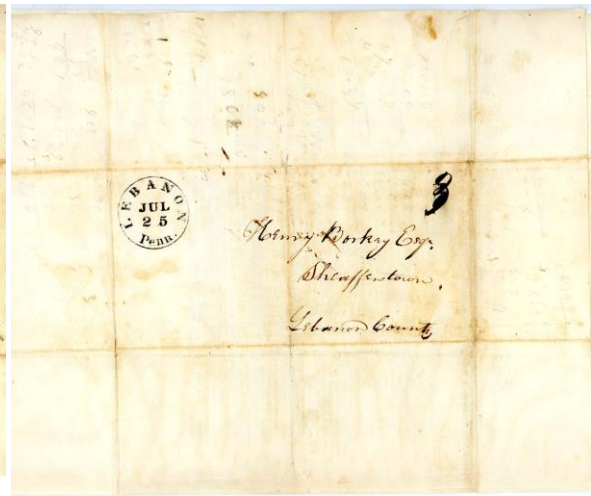 LEBANON
JUL
25
Penn.
Henry Borkey Esqr.
Sheafferstown,
Lebanon County